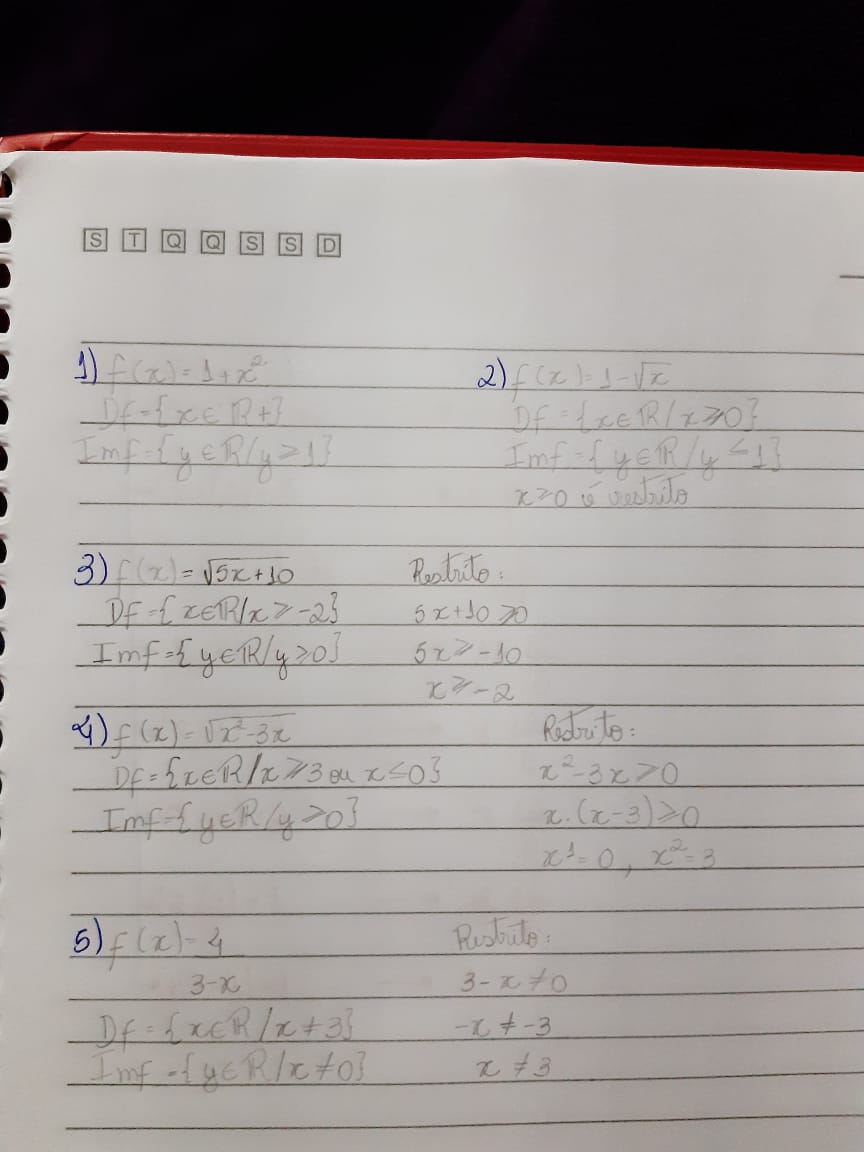 S T Q Q S S D
1) f(x) = 1+x²
Df = {x ∈ ℝ+}
Imf = {y ∈ ℝ/y ≥ 1}
2) f(x) = 1-√x
Df = {x ∈ ℝ/x ≥ 0}
Imf = {y ∈ ℝ/y ≤ 1}
x ≥ 0 é restrito
3) f(x) = √5x+10
Df = {x ∈ ℝ/x ≥ -2}
Imf = {y ∈ ℝ/y ≥ 0}
Restrito:
5x+10 ≥ 0
5x ≥ -10
x ≥ -2
4) f(x) = √x²-3x
Df = {x ∈ ℝ/x ≥ 3 ou x ≤ 0}
Imf = {y ∈ ℝ/y ≥ 0}
Restrito:
x²-3x ≥ 0
x.(x-3) ≥ 0
x¹ = 0, x² = 3
5) f(x) = 4
3-x
Df = {x ∈ ℝ/x ≠ 3}
Imf = {y ∈ ℝ/x ≠ 0}
Restrito:
3-x ≠ 0
-x ≠ -3
x ≠ 3